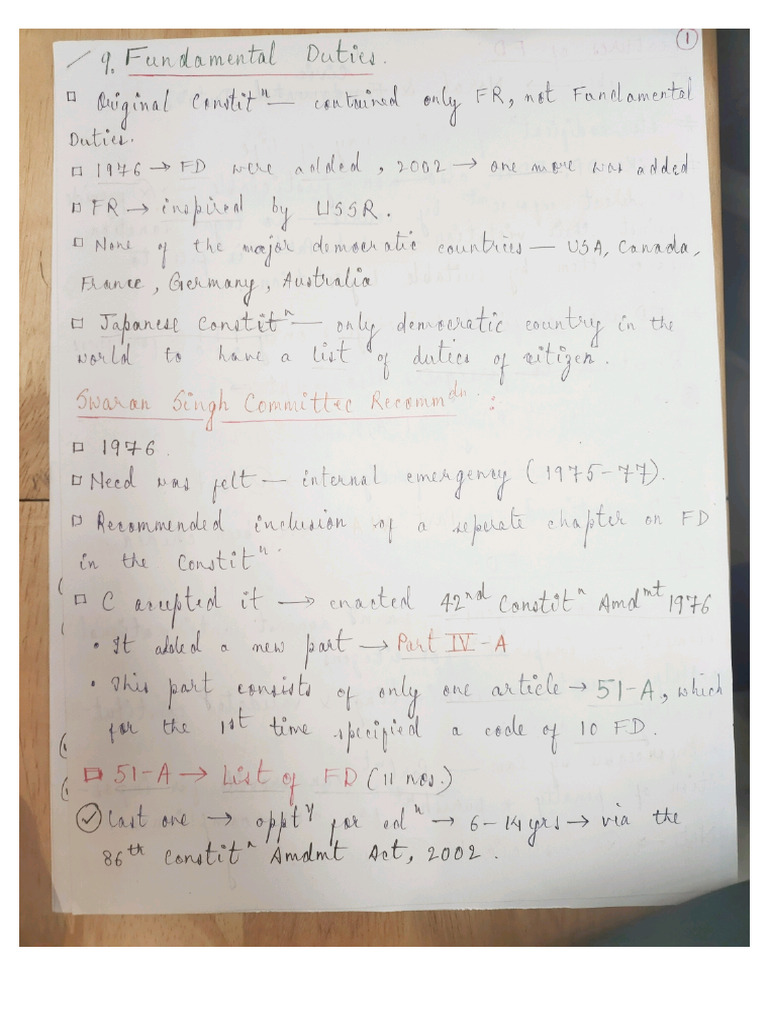 1
9. Fundamental Duties.
Original Constitⁿ — contained only FR, not Fundamental
Duties.
1976 → FD were added, 2002 → one more was added
FR → inspired by USSR.
None of the major democratic countries — USA, Canada,
France, Germany, Australia
Japanese Constitⁿ — only democratic country in the
world to have a list of duties of citizen.
Swaran Singh Committee Recommdn. :
1976.
Need was felt — internal emergency (1975-77).
Recommended inclusion of a seperate chapter on FD
in the Constitⁿ.
C accepted it → enacted 42nd Constitⁿ Amdmt 1976
• It added a new part → Part IV-A
• This part consists of only one article → 51-A, which
for the 1st time specified a code of 10 FD.
51-A → List of FD (11 nos.)
Last one → opptʸ for edⁿ → 6-14 yrs → via the
86th Constitⁿ Amdmt Act, 2002.